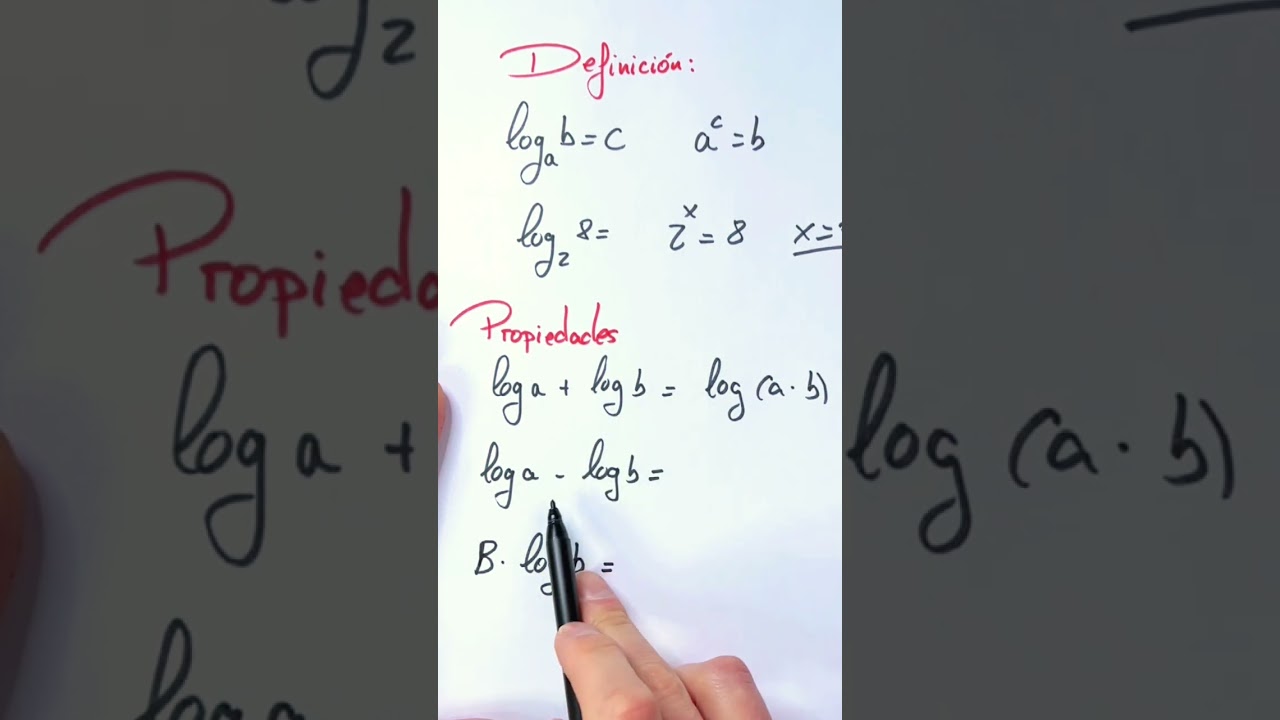 Definición:
log_a b = c a^c = b
log_2 8 = 2^x = 8 x=
Propiedades
log a + log b = log (a · b)
log a - log b =
B · log b =